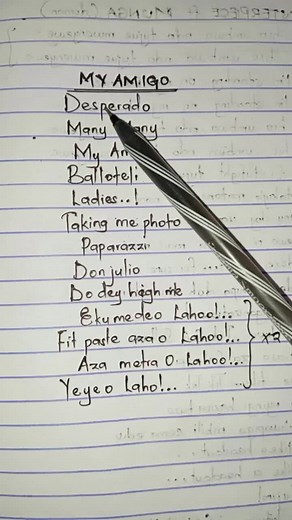 MY AMIGO
Desperado
Many
My
Balloteli
Ladies..!
Taking me photo
Paparazzi
Don julio
Do dey high me
Ekumedeo Lahoo!..
Fit paste aza o Lahoo!..
Aza metra o Lahoo!..
Yeyeo Laho!..
x2